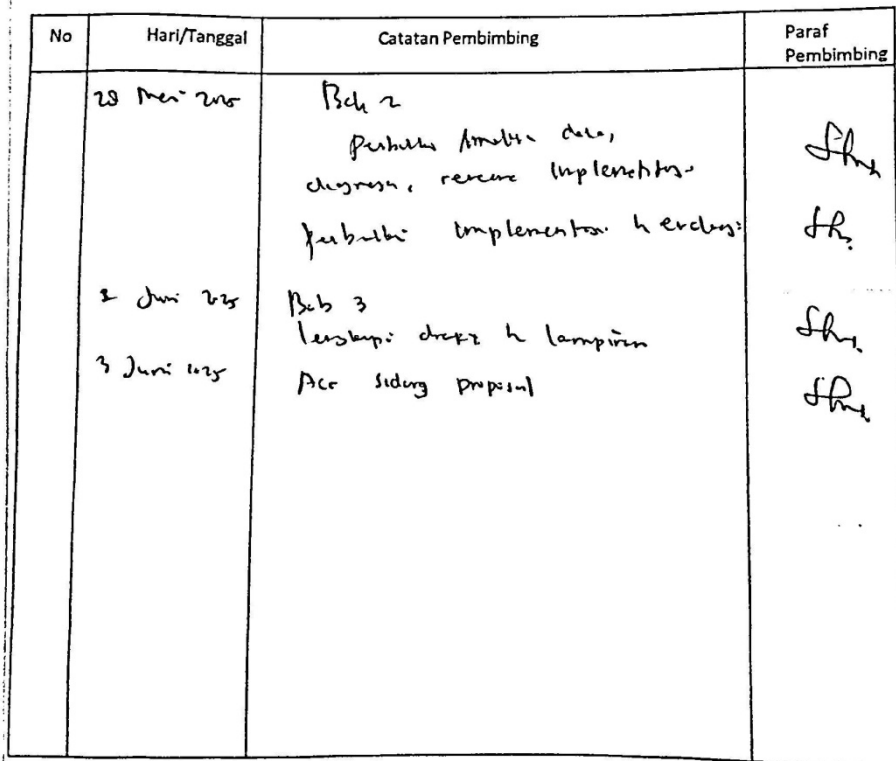 No Hari/Tanggal Catatan Pembimbing Paraf Pembimbing
Mei 2025 Bab 2
Analisa data,
diagnosa, rencana implementasi
Perbaiki implementasi & evaluasi
2 Juni 2025 Bab 3
Lengkapi & lampiran
3 Juni 2025 Acc sidang proposal